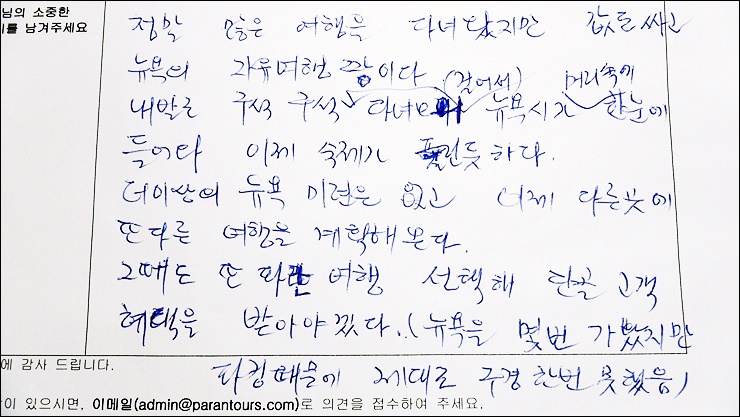 님의 소중한
를 남겨주세요
정말 많은 여행을 다녀봤지만 값도 싸고
뉴욕의 자유여행 짱이다
(걸어서) 머리속에
내발로 구석 구석 다녀보니 뉴욕시가 한눈에
들어와 이제 숙제가 풀린듯 하다.
더이상의 뉴욕 미련은 없고 이제 다른곳에
또다른 여행을 계획해 본다.
그때도 또 파란 여행 선택해 단골 고객
혜택을 받아야겠다..(뉴욕을 몇번 가봤지만
파킹때문에 제대로 구경 한번 못했음)
에 감사 드립니다.
이 있으시면, 이메일(admin@parantours.com)로 의견을 접수하여 주세요.